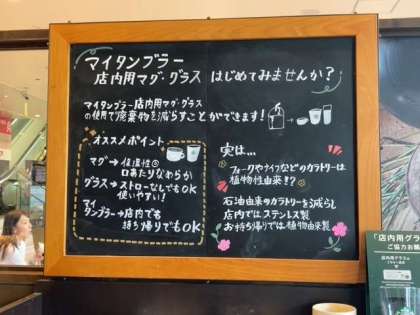 マイタンブラー
店内用マグ・グラス はじめてみませんか?
マイタンブラー店内用マグ・グラス
の使用で廃棄物を減らすことができます!
オススメポイント
マグ→保温性◎
口あたりなめらか
グラス→ストローなしでもOK
使いやすい!
マイ
タンブラー→店内でも
持ち帰りでもOK
実は…
フォークやナイフなどのカラトリーは
植物性由来!?
石油由来のカラトリーを減らし
店内ではステンレス製
お持ち帰りでは植物由来製
「店内用グラ
ご協力お願